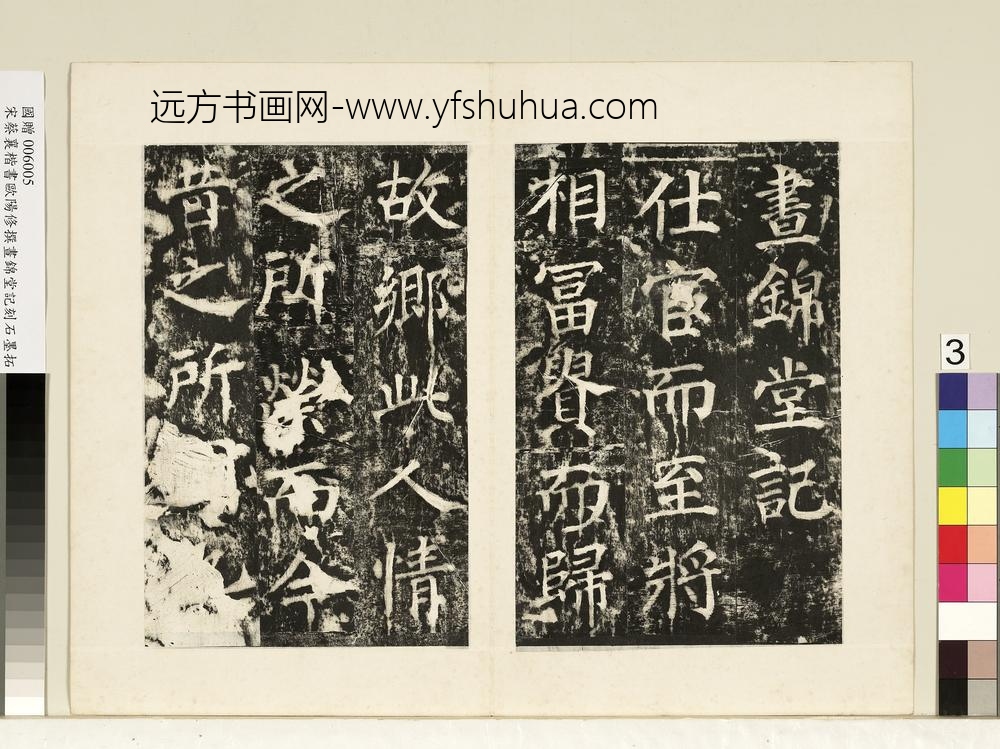 远方书画网-www.yfshuhua.com
晝錦堂記
仕宦而至將
相冨貴而歸
故鄉此人情
之所榮而今
昔之所
國贈 006005
宋蔡襄楷書歐陽修撰晝錦堂記刻石墨拓
3